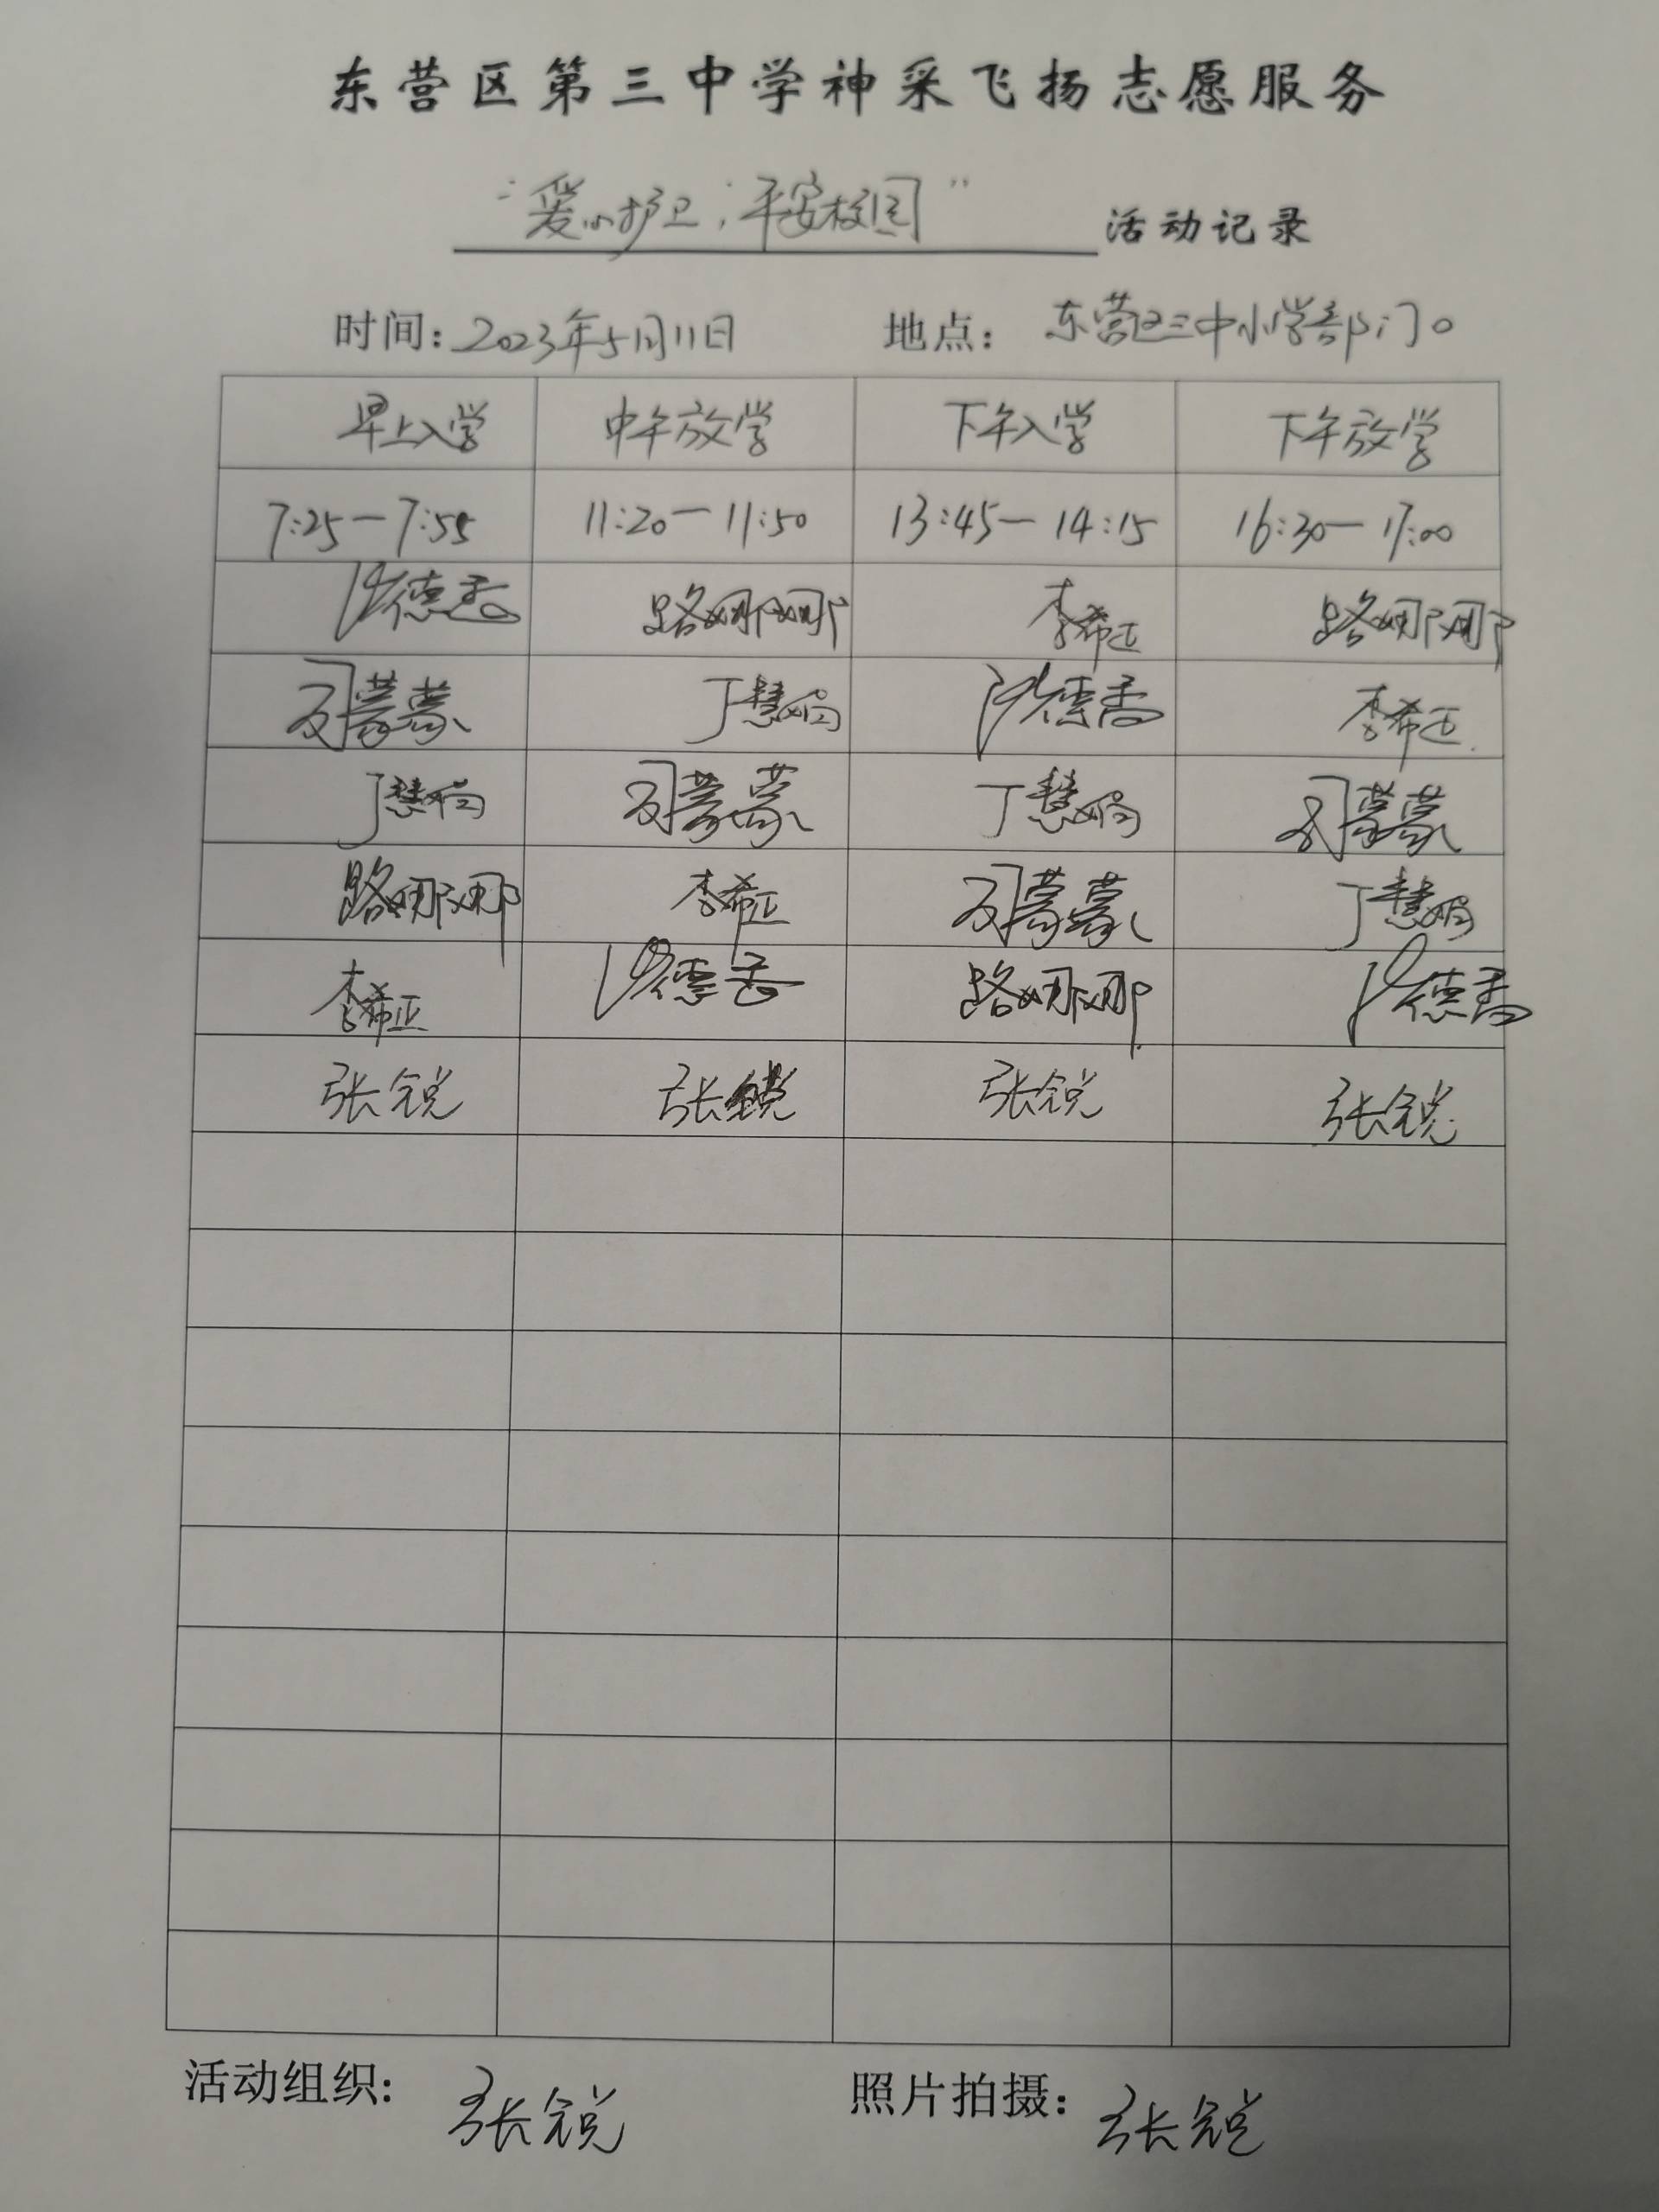 东营区第三中学神采飞扬志愿服务
“爱心护卫,平安校园” 活动记录
时间: 2023年5月11日 地点: 东营区三中小学部门口
早上入学 中午放学 下午入学 下午放学
7:25—7:55 11:20—11:50 13:45—14:15 16:30—17:00
德香 路娜娜 李希正 路娜娜
司蒙蒙 丁慧娟 德香 李希正
丁慧娟 司蒙蒙 丁慧娟 司蒙蒙
路娜娜 李希正 司蒙蒙 丁慧娟
李希正 德香 路娜娜 德香
张锐 张锐 张锐 张锐
活动组织: 张锐 照片拍摄: 张锐